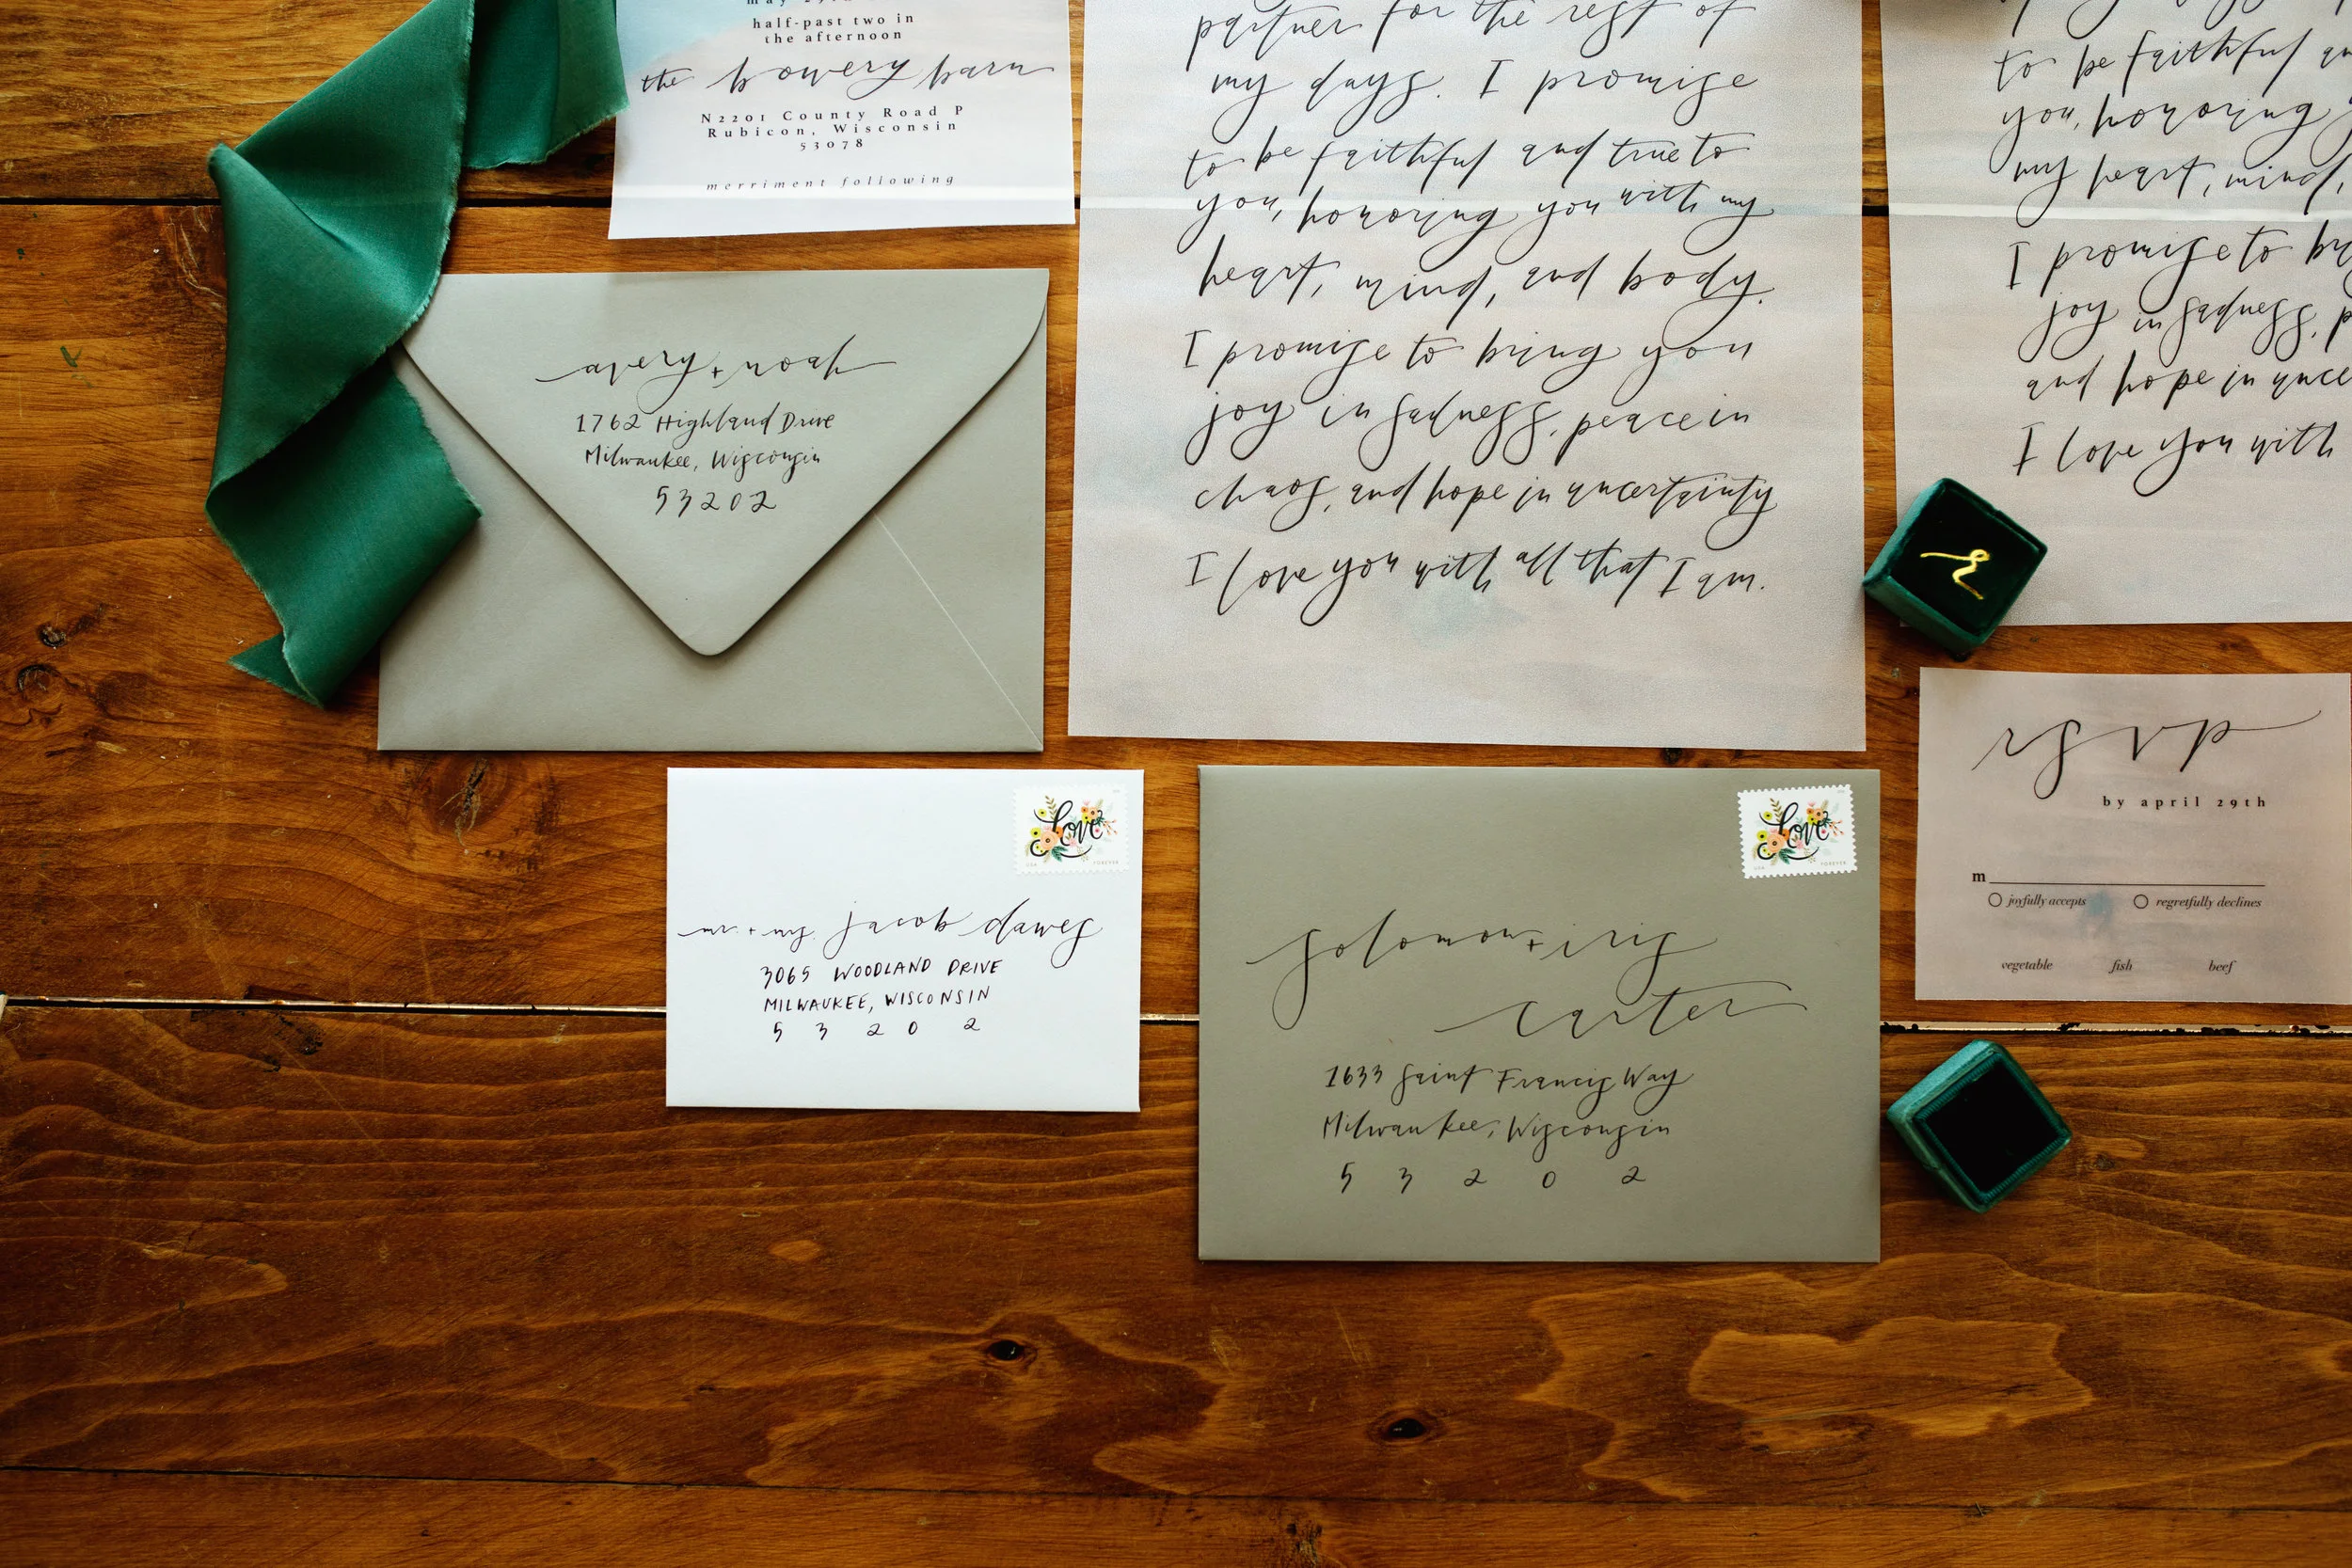 half-past two in
the afternoon
the bowery barn
N2201 County Road P
Rubicon, Wisconsin
53078
merriment following
avery + noah
1762 Highland Drive
Milwaukee, Wisconsin
53202
partner for the rest of
my days. I promise
to be faithful and true to
you, honoring you with my
heart, mind, and body.
I promise to bring you
joy in sadness, peace in
chaos, and hope in uncertainty
I love you with all that I am.
to be faithful
you, honoring
my heart, mind,
I promise to
joy in sadness,
and hope in
I love you with
Love
USA FOREVER
mr. + ms. jacob dawes
3065 WOODLAND DRIVE
MILWAUKEE, WISCONSIN
5 3 2 0 2
Love
USA FOREVER
solomon + iris
carter
1633 Saint Francis Way
Milwaukee, Wisconsin
5 3 2 0 2
rsvp
by april 29th
m
joyfully accepts regretfully declines
vegetable fish beef